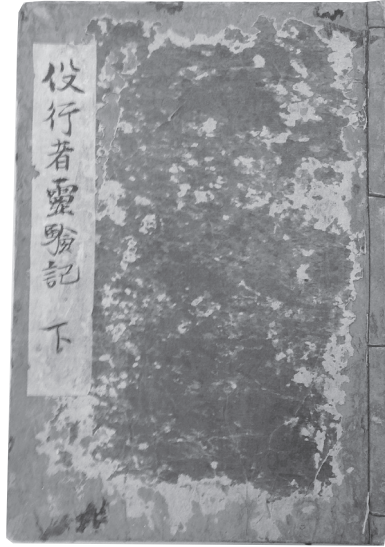 役行者靈驗記　下